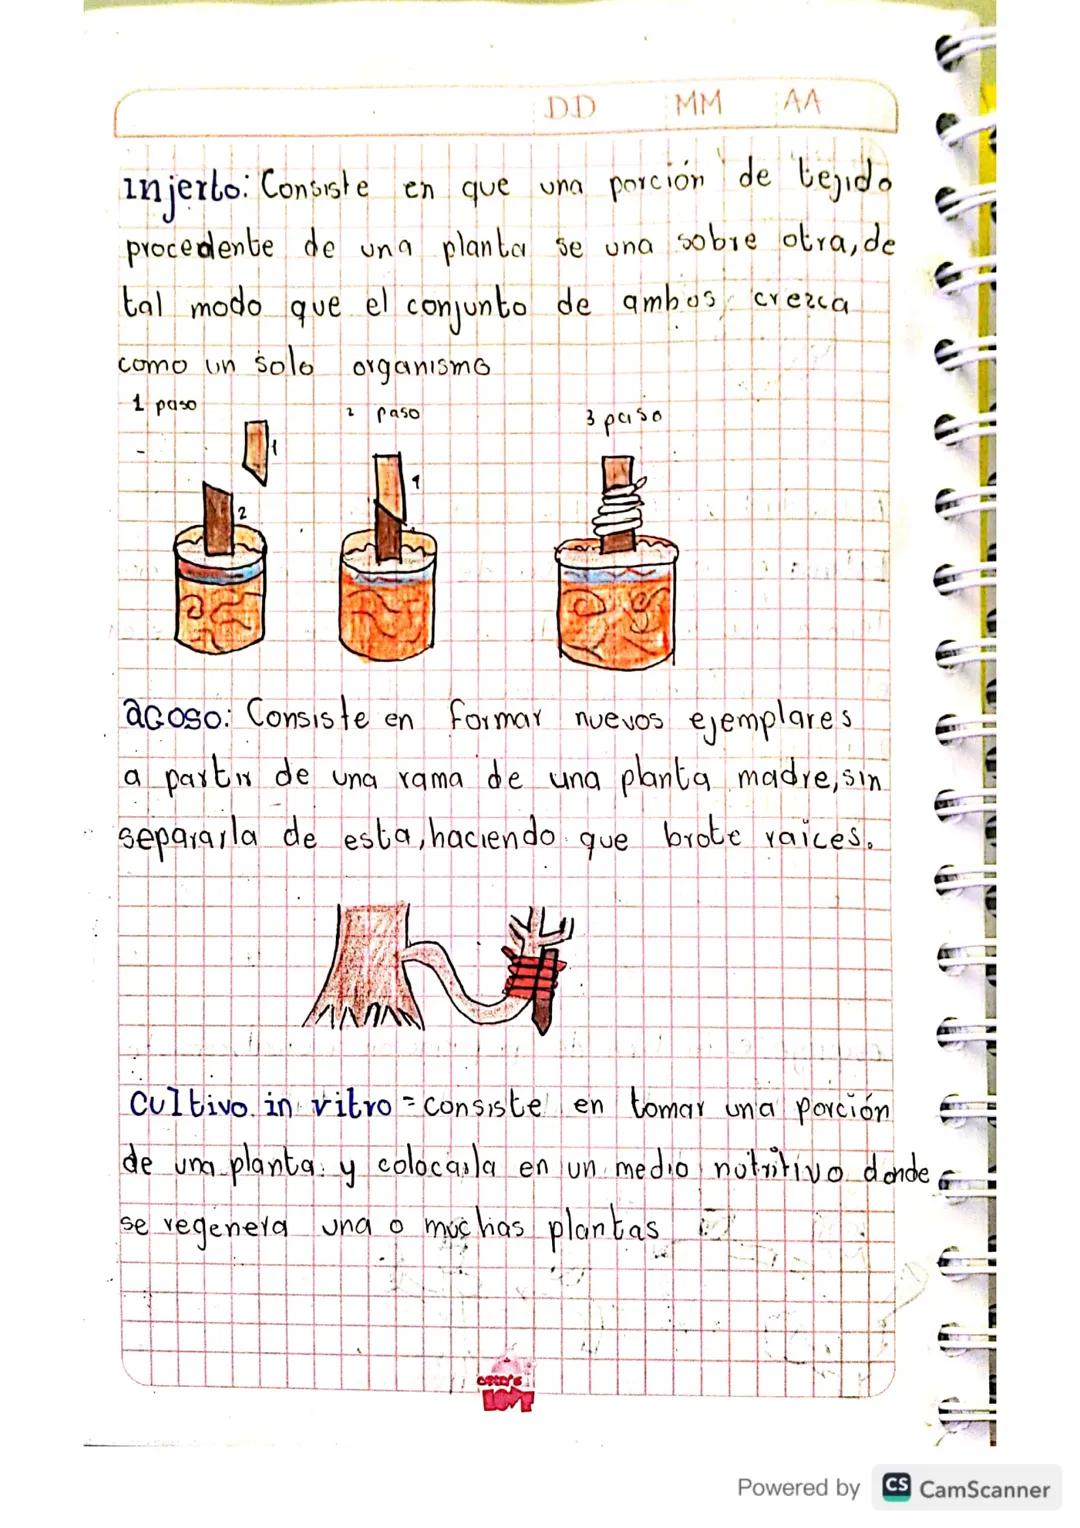 DD MM AA
injerto: Consiste en que una porción de tejido
procedente de una planta se una sobre otra, de
tal modo que el conjunto de ambos crezca
como un solo organismo
1 paso
2 paso
3 paso
1
2
1
acoso: Consiste en formar nuevos ejemplares
a partir de una rama de una planta madre, sin
separarla de esta, haciendo que brote raices.
Cultivo in vitro = consiste en tomar una porción
de una planta y colocarla en un medio nutritivo donde
se regenera una o muchas plantas
LOVE
Powered by CS CamScanner